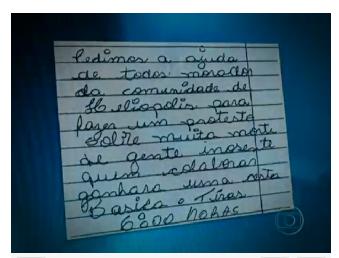 Pedimos a ajuda
de todos morador
da comunidade de
Heliopolis para
fazer um protesto
sobre muita morte
de gente inosente
quem colaborar
ganhara uma cesta
Basica e
6:00 horas